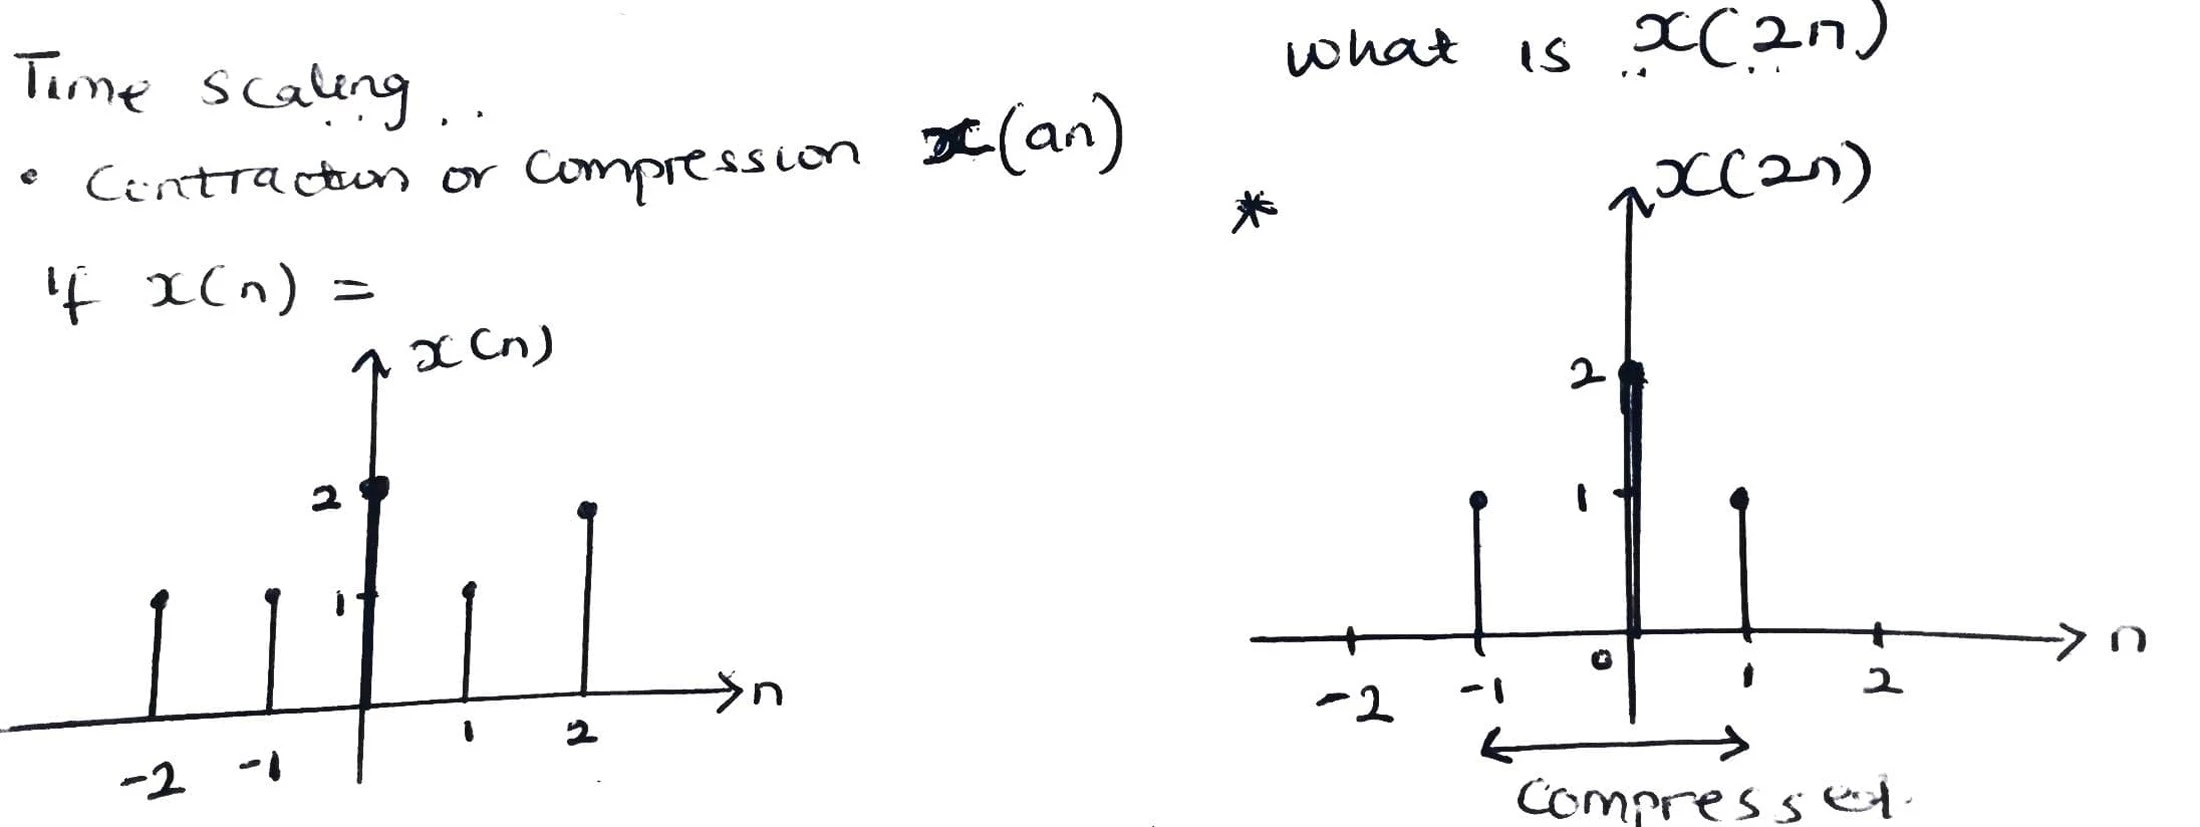 Time scaling
• Contraction or compression x(an)
If x(n) =
x(n)
2
1
n
-2 -1 1 2
what is x(2n)
*
x(2n)
2
1
n
-2 -1 0 1 2
compressed.